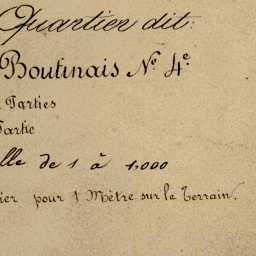 Quartier dit:
Boutinais Nº 4e
Parties
Partie
lle de 1 à 1.000
ier pour 1 Mètre sur le Terrain.